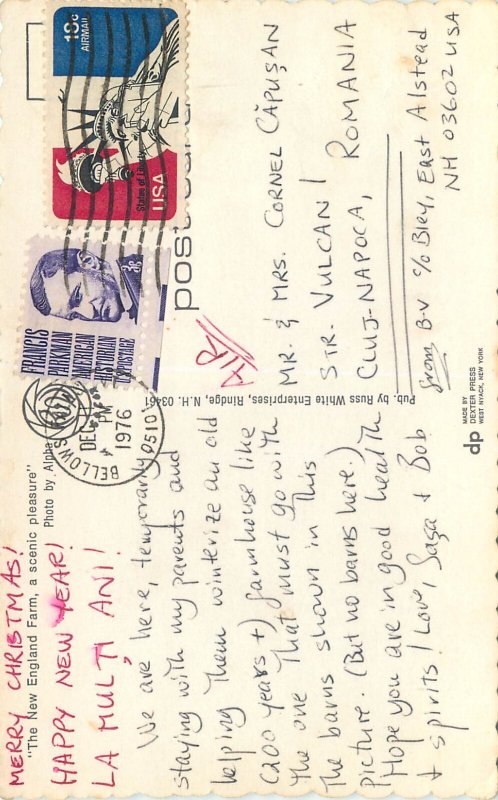 MERRY CHRISTMAS!
HAPPY NEW YEAR!
LA MULȚI ANI!
"The New England Farm, a scenic pleasure"
Photo by Alpha
We are here, temporarily
staying with my parents and
helping them winterize an old
(200 years +) farmhouse like
the one that must go with
the barns shown in this
picture. (But no barns here.)
Hope you are in good health
& spirits! Love, Saza & Bob
BELLOWS
DEC
4
PM
1976
05101
18c
AIRMAIL
Statue of Liberty
USA
FRANCIS
PARKMAN
AMERICAN
HISTORIAN
US POSTAGE
postcard
AIR
Pub. by Russ White Enterprises, Rindge, N.H. 03461
MR. & MRS. CORNEL CĂPUȘAN
STR. VULCAN 1
CLUJ-NAPOCA, ROMANIA
from B-V c/o Bley, East Alstead
NH 03602 USA
dp
MADE BY
DEXTER PRESS
WEST NYACK, NEW YORK